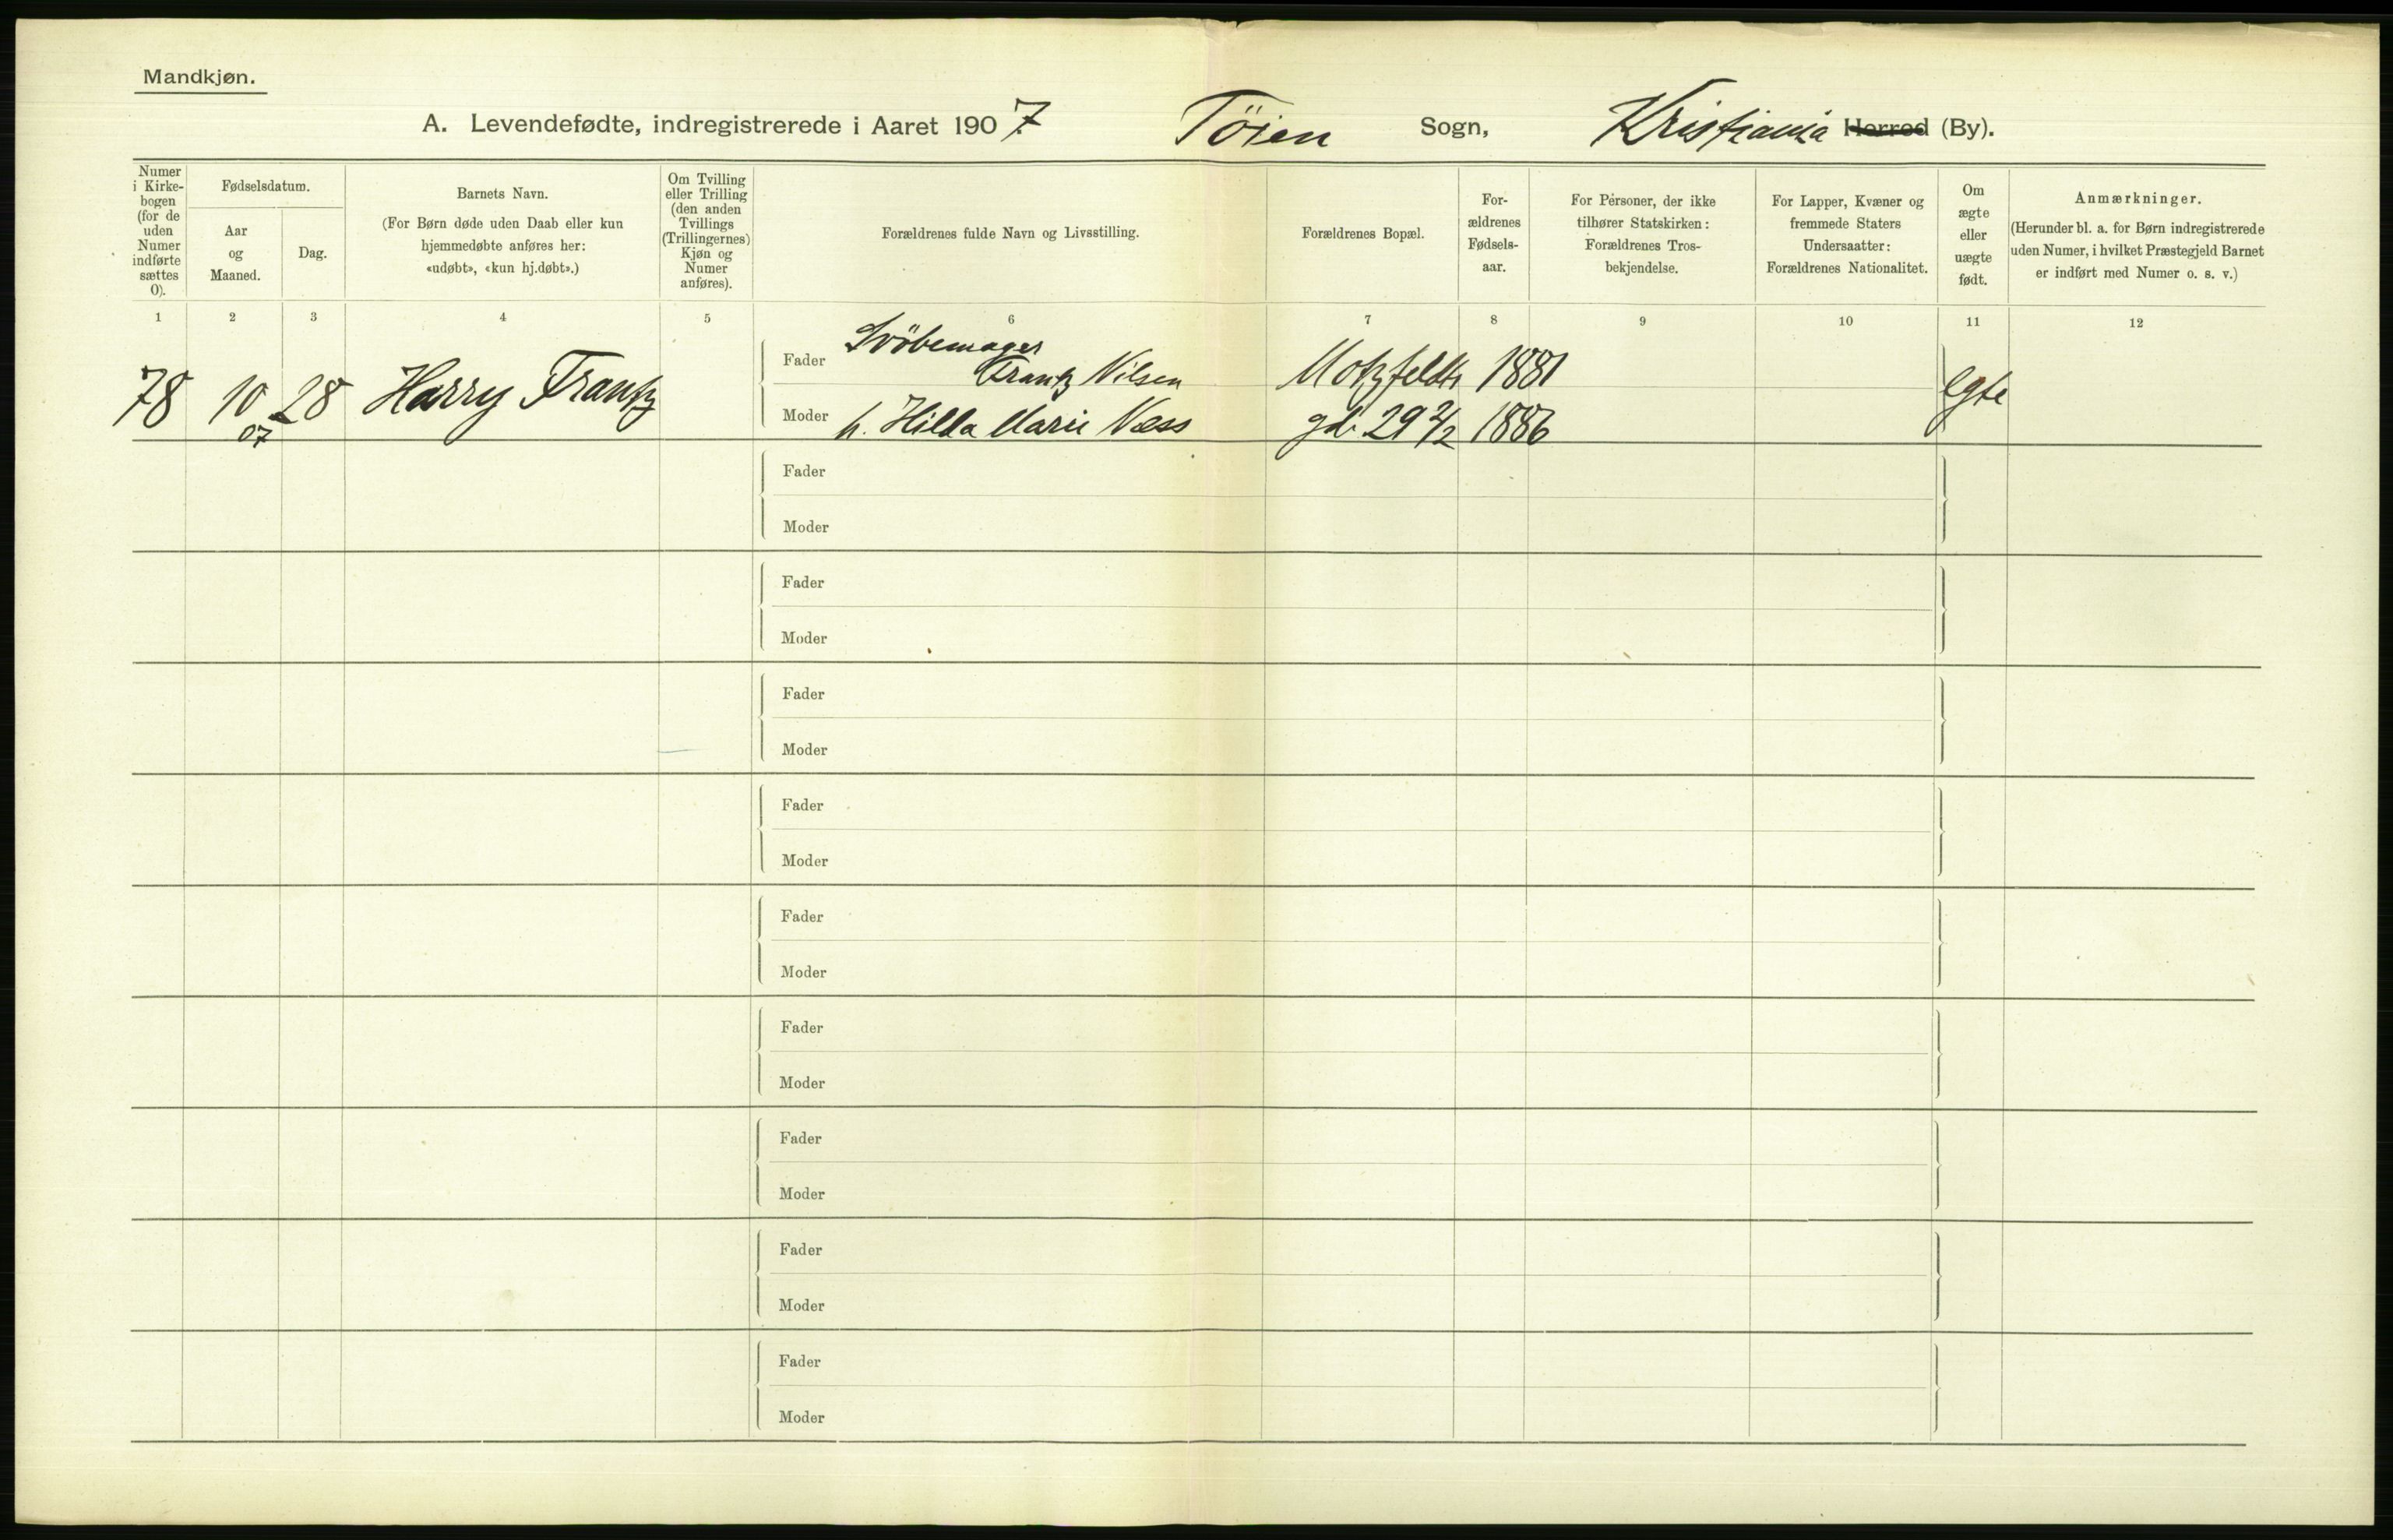 Mandkjøn.
A. Levendefødte, indregistrerede i Aaret 1907 Töien Sogn, Kristiania Herred (By).
Numer i Kirkebogen (for de uden Numer indførte sættes 0).
Fødselsdatum.
Aar og Maaned.
Dag.
Barnets Navn.
(For Børn døde uden Daab eller kun
hjemmedøbte anføres her:
«udøbt», «kun hj.døbt».)
Om Tvilling
eller Trilling
(den anden
Tvillings
(Trillingernes)
Kjøn og
Numer
anføres).
Forældrenes fulde Navn og Livsstilling.
Forældrenes Bopæl.
For-
ældrenes
Fødsels-
aar.
For Personer, der ikke
tilhører Statskirken:
Forældrenes Tros-
bekjendelse.
For Lapper, Kvæner og
fremmede Staters
Undersaatter:
Forældrenes Nationalitet.
Om
ægte
eller
uægte
født.
Anmærkninger.
(Herunder bl. a. for Børn indregistrerede
uden Numer, i hvilket Præstegjeld Barnet
er indført med Numer o. s. v.)
1 2 3 4 5 6 7 8 9 10 11 12
78 10 07 28 Harry Frantz
Fader Svöbemager
Frantz Nilsen Motzfeldts 1881 egte
Moder h. Hilda Marie Næss gd. 29 2/2 1886
Fader
Moder
Fader
Moder
Fader
Moder
Fader
Moder
Fader
Moder
Fader
Moder
Fader
Moder
Fader
Moder
Fader
Moder